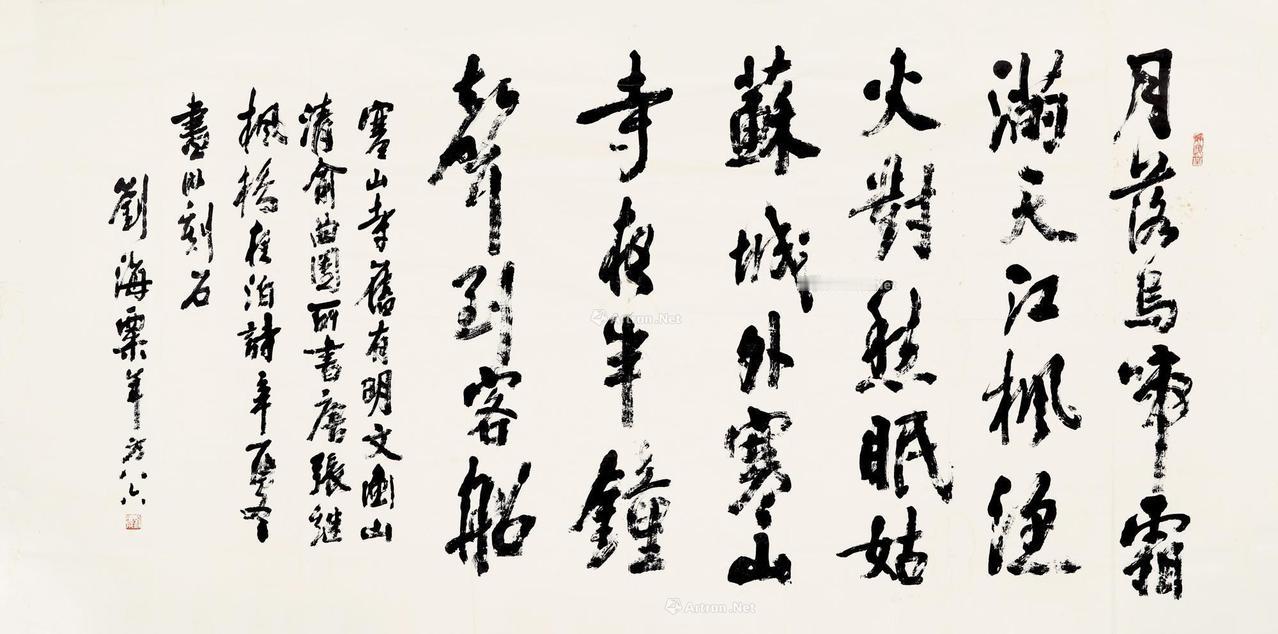 月落烏啼霜
滿天江楓漁
火對愁眠姑
蘇城外寒山
寺夜半鐘
聲到客船
寒山寺舊有明文衡山
清俞曲園所書唐張繼
楓橋夜泊詩辛酉冬
書此刻石
劉海粟年方八六
Artron.Net
Artron.Net